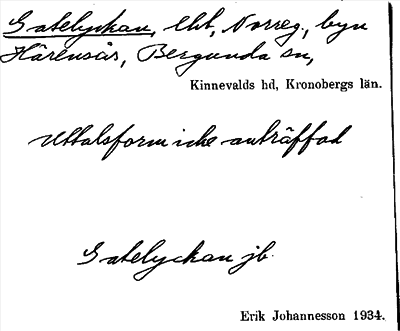 Gatelyckan, lht, Norreg., byn
Härensås, Bergunda sn,
Kinnevalds hd, Kronobergs län.
Uttalsform icke anträffad
Gatelyckan jb.
Erik Johannesson 1934.